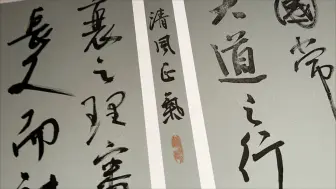 國常
大道之行
清風正氣
襄之理審
長人而